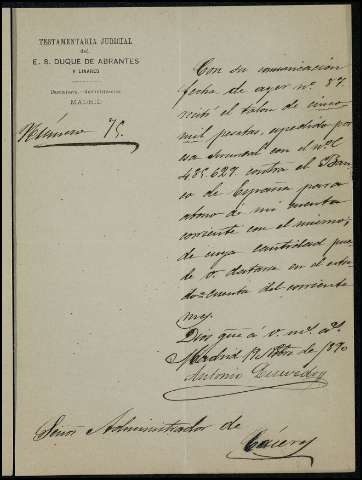 TESTAMENTARIA JUDICIAL
del
E. S. DUQUE DE ABRANTES
Y LINARES
MADRID
Número 75.
Con su comunicación
fecha de ayer nº. 87.
recibí el talon de cinco
mil pesetas, expedido por
esa Sucursal con el nº C
485.627 contra el Ban-
co de España para
abono de mi cuenta
corriente con el mismo;
de cuya cantidad pue-
de V. datarse en el estado
cuenta del corriente
mes.
Dios gue á V. ms. as.
Madrid 19 de 1890
Antonio
Señor Administrador de
Cáceres